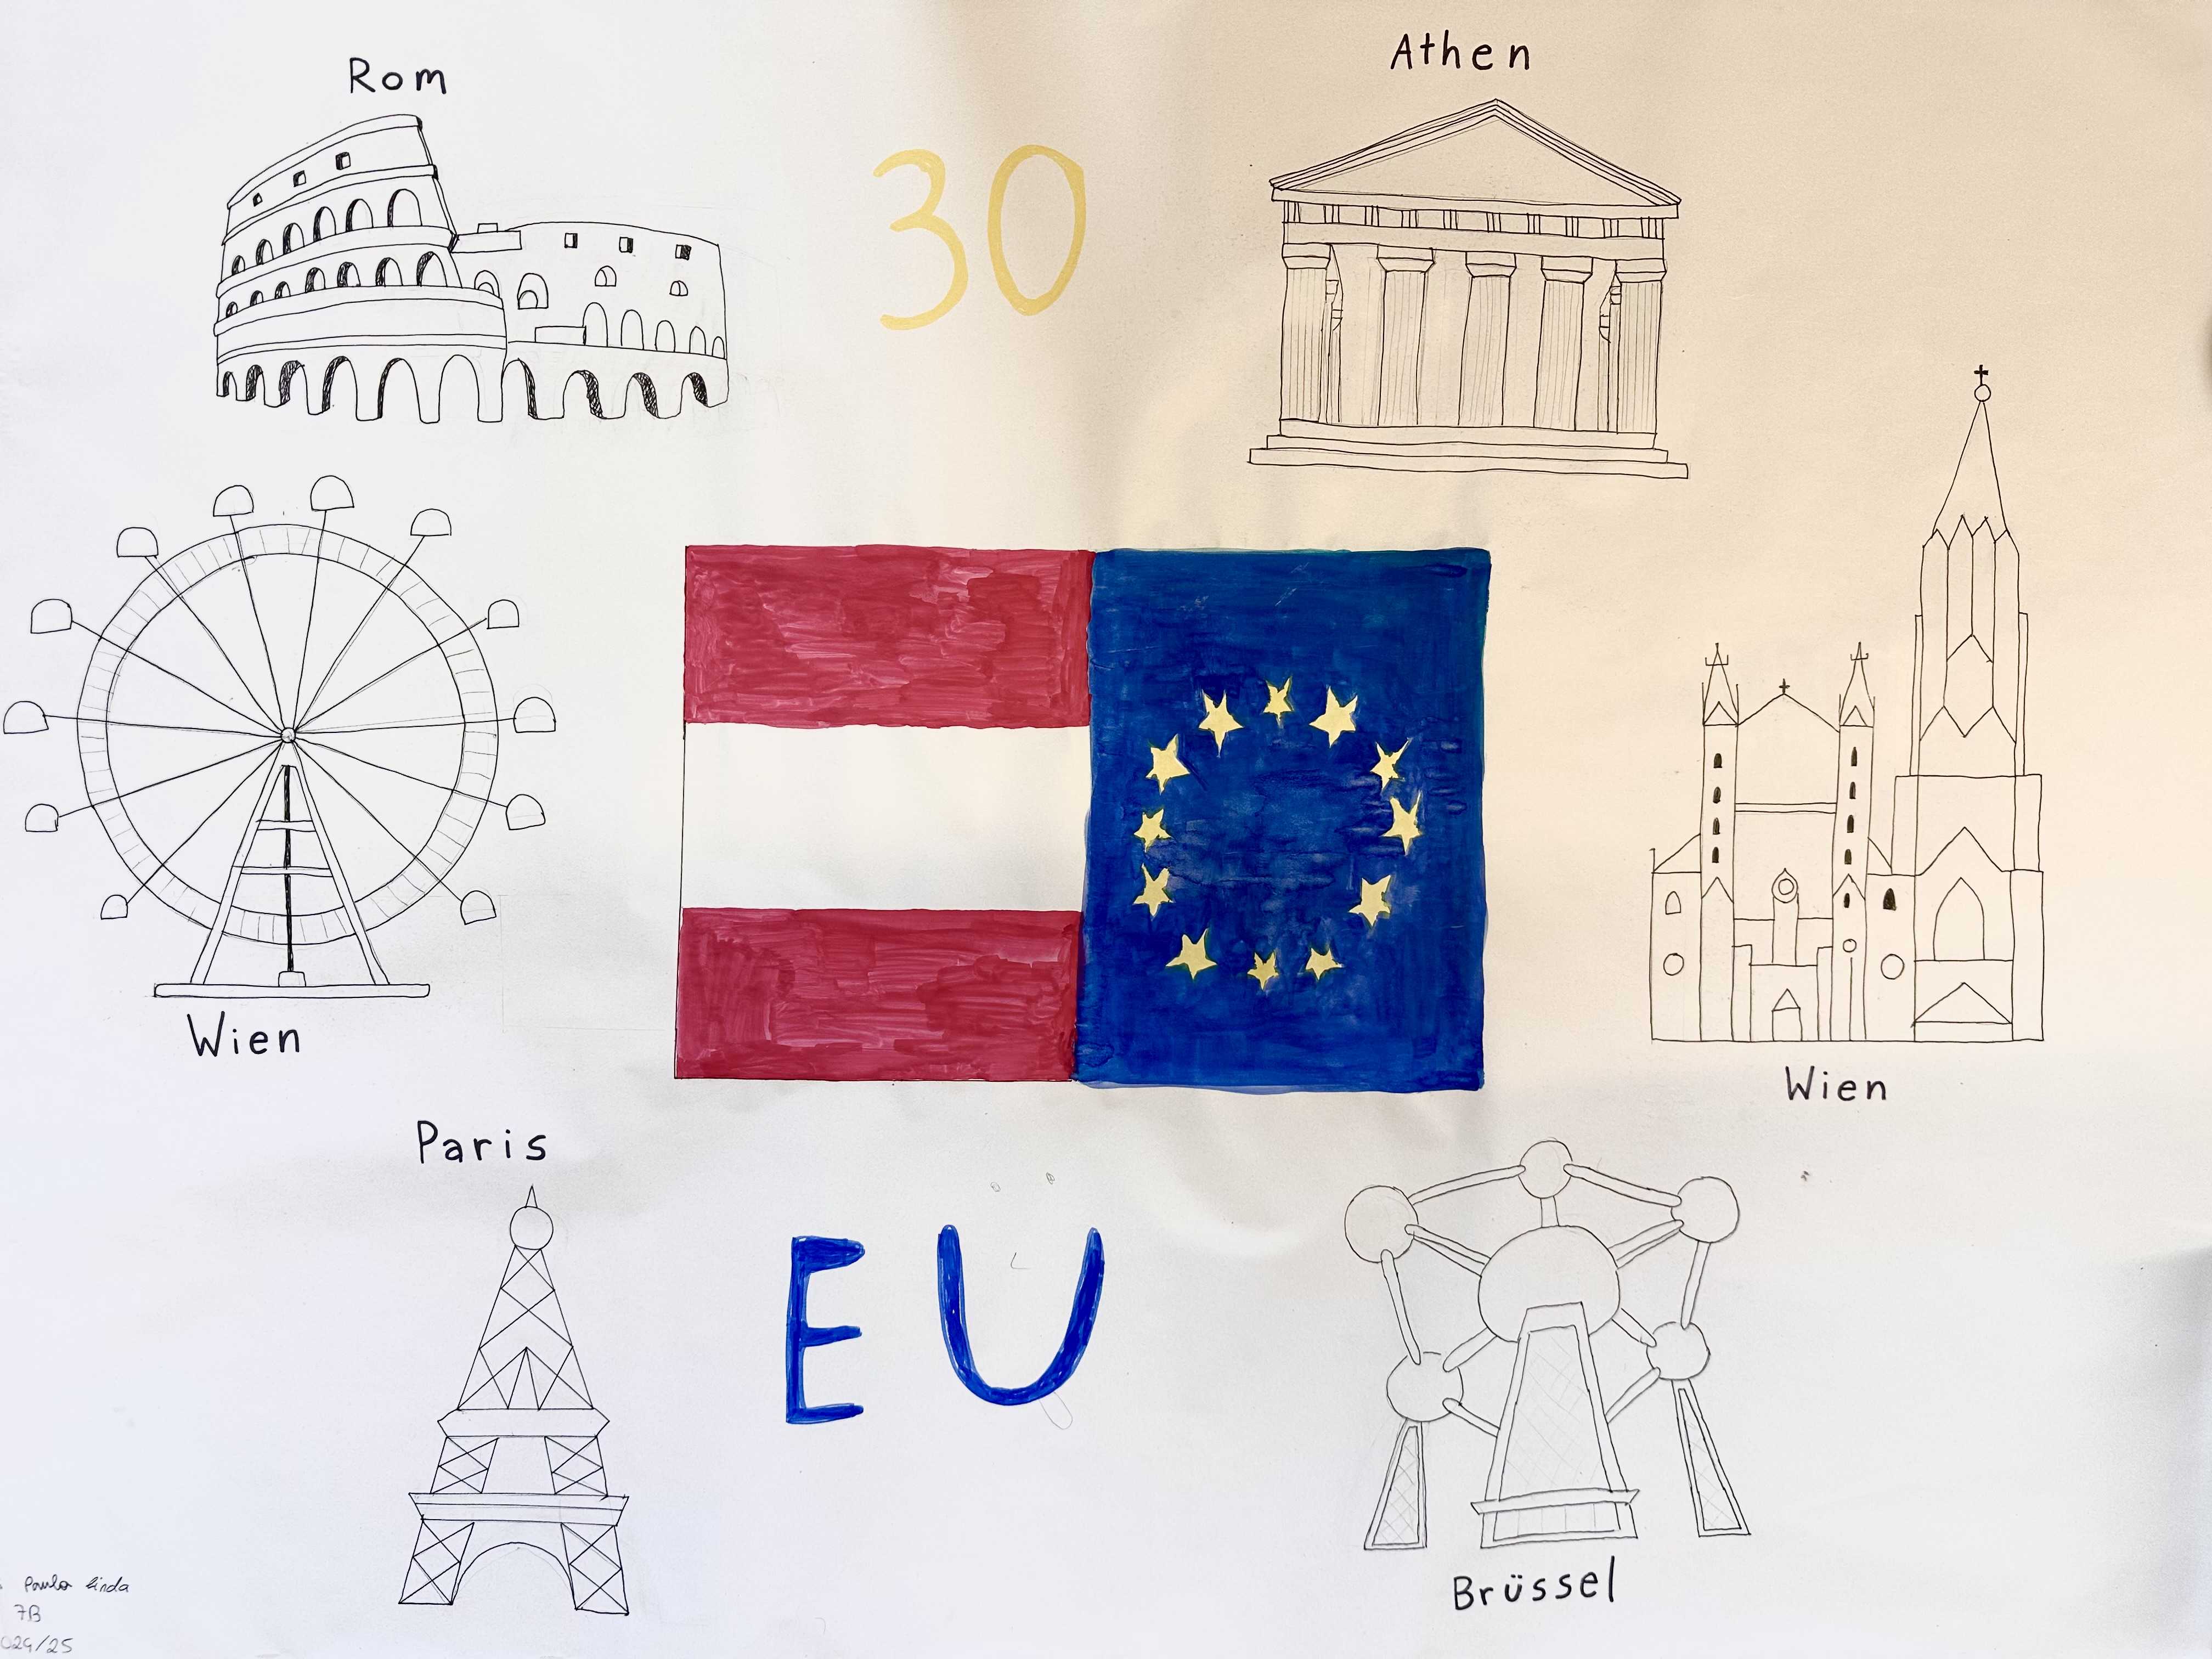 Rom
Athen
30
Wien
Wien
Paris
EU
Brüssel
Paula Linda
7B
024/25